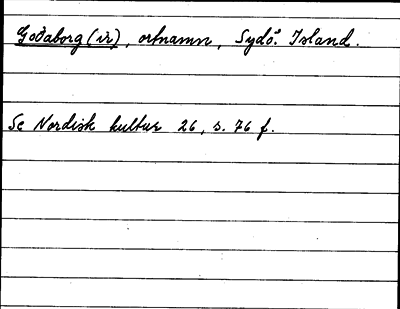 Goðaborg (ir), ortnamn, Sydö. Island.
Se Nordisk kultur 26, s. 76 f.